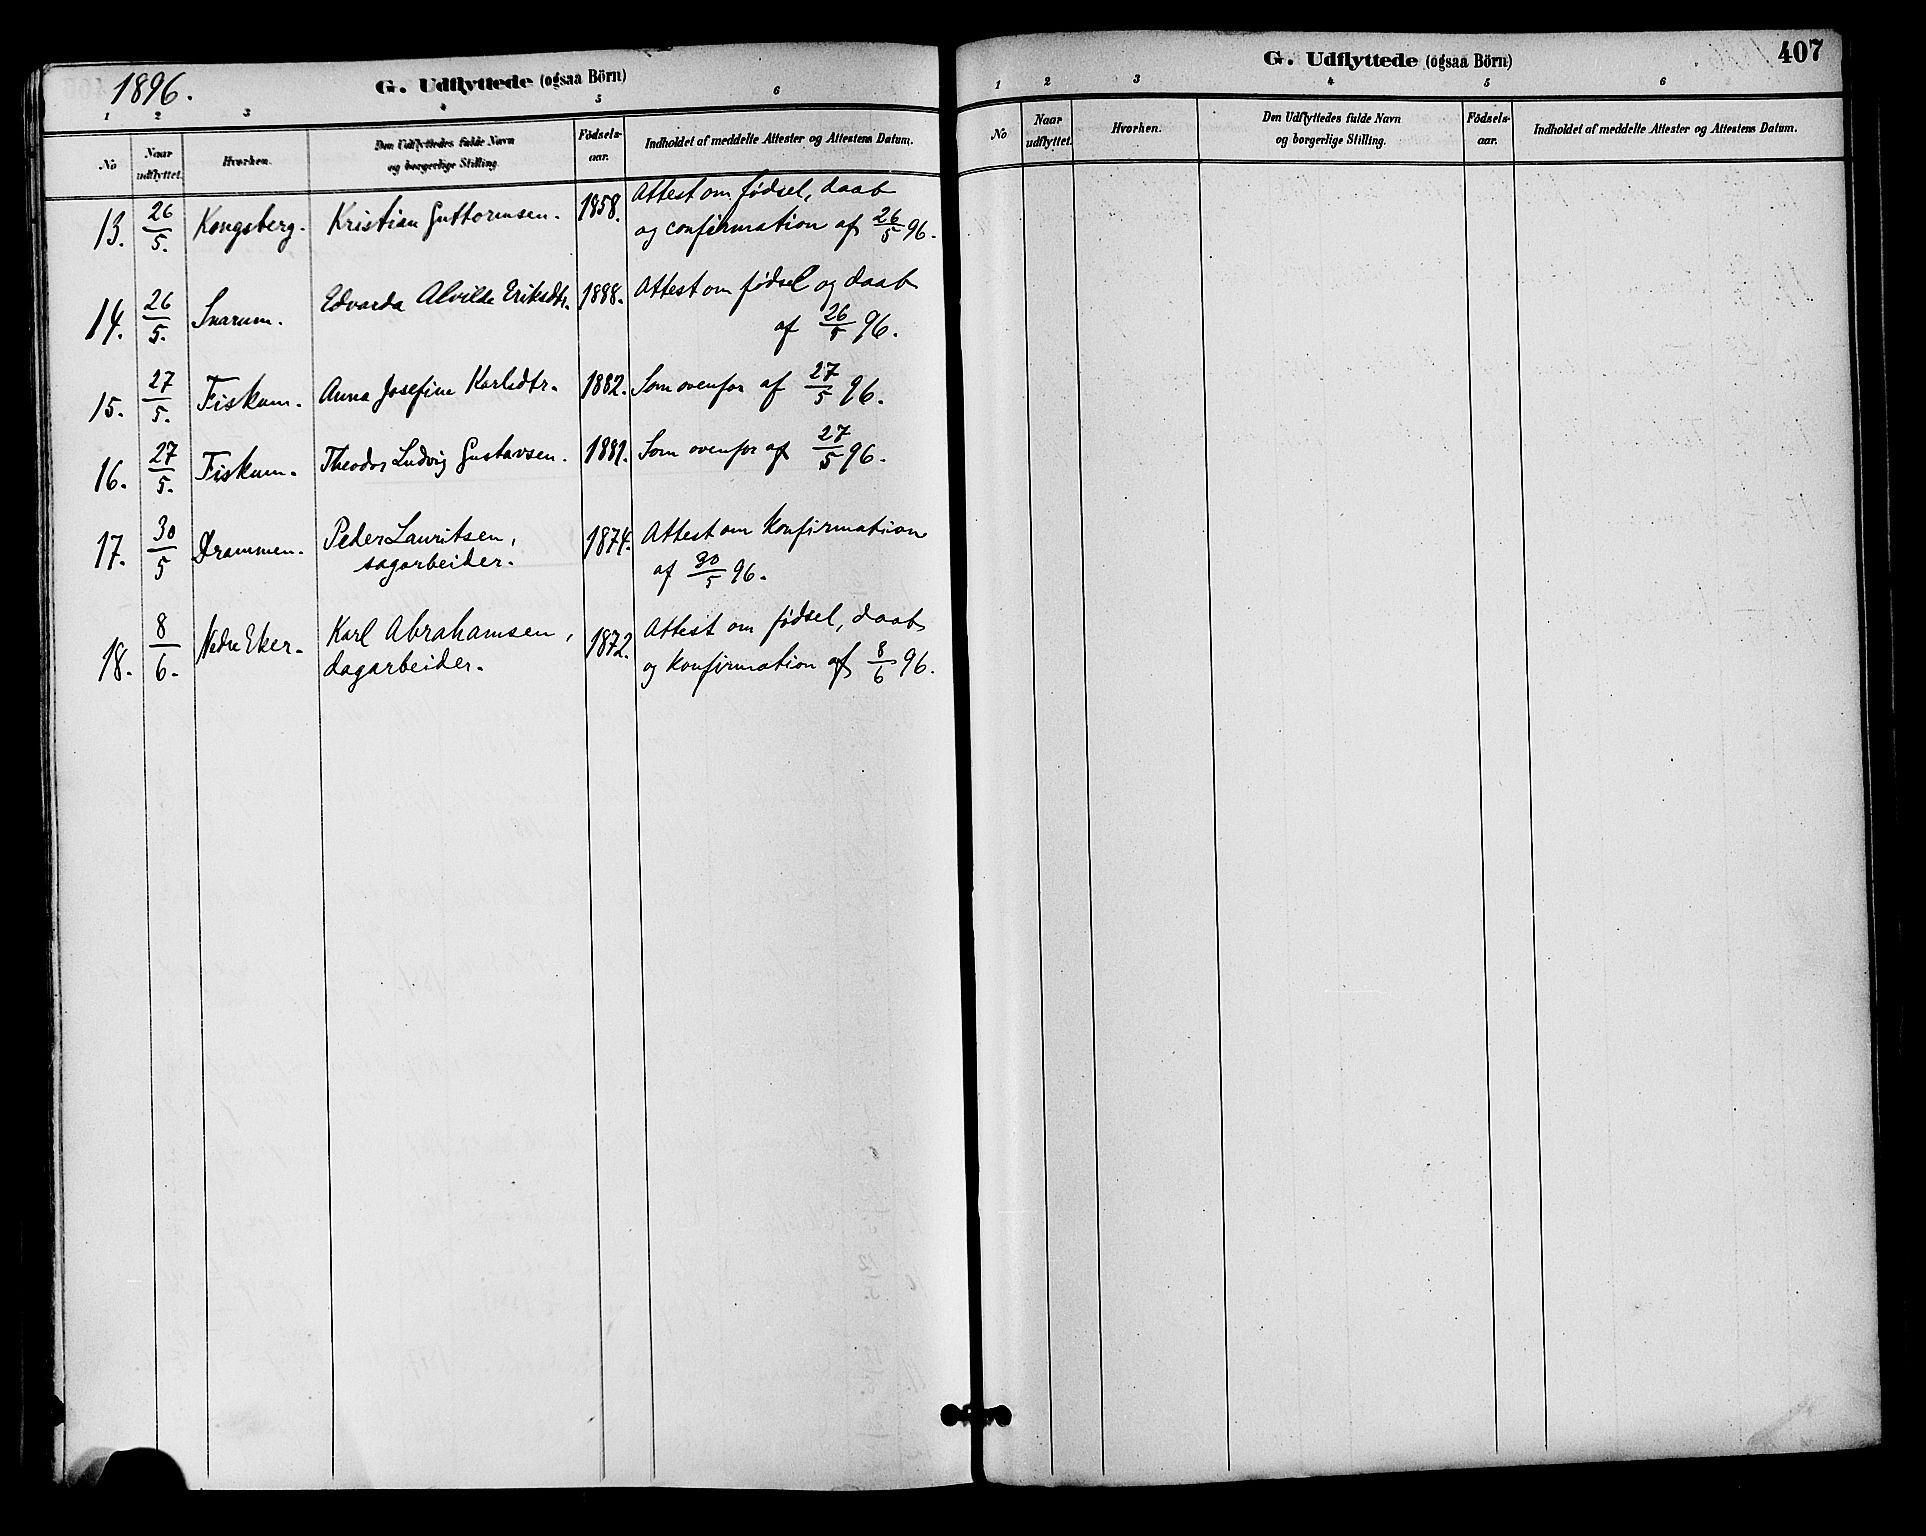 1896.
G. Udflyttede (ogsaa Börn)
1 2 3 4 5 6
No
Naar udflyttet.
Hvorhen.
Den Udflyttedes fulde Navn og borgerlige Stilling.
Fødselsaar.
Indholdet af meddelte Attester og Attestens Datum.
13. 26/5. Kongsberg. Kristian Guttormsen. 1858. Attest om fødsel, daab
og confirmation af 26/5 96.
14. 26/5. Snarum. Edvarda Alvilde Eriksdtr. 1888. Attest om fødsel og daab
af 26/5 96.
15. 27/5. Fiskum. Anna Josefine Karlsdtr. 1882. Som ovenfor af 27/5 96.
16. 27/5. Fiskum. Theodor Ludvig Gustavsen. 1881. Som ovenfor af 27/5 96.
17. 30/5 Drammen. Peder Lauritsen, 1874. Attest om konfirmation
sagarbeider. af 30/5 96.
18. 8/6. Nedre Eker. Karl Abrahamsen, 1872. Attest om fødsel, daab
dagarbeider. og konfirmation af 8/6 96.
407
G. Udflyttede (ogsaa Börn)
1 2 3 4 5 6
No
Naar udflyttet.
Hvorhen.
Den Udflyttedes fulde Navn og borgerlige Stilling.
Fødselsaar.
Indholdet af meddelte Attester og Attestens Datum.